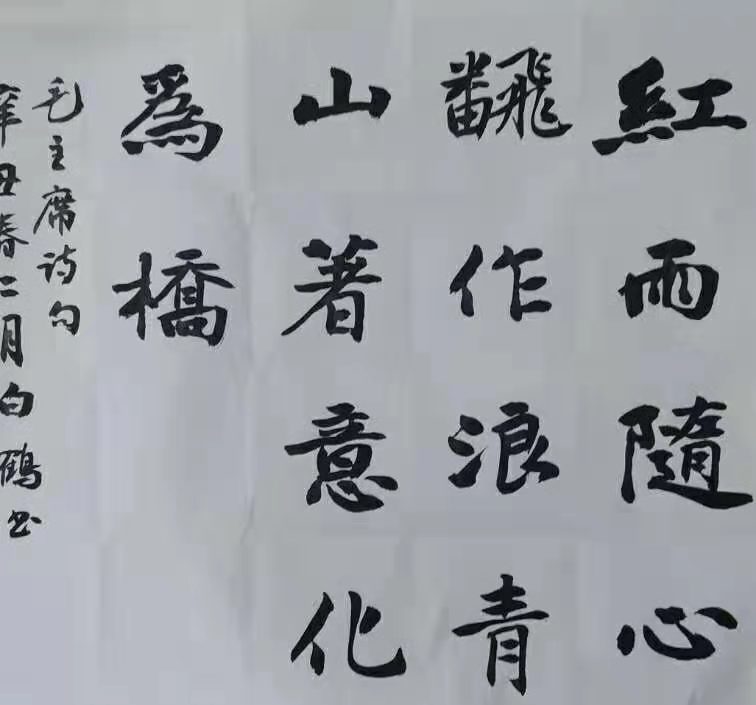 紅雨隨心
飜作浪青
山著意化
為橋
毛主席诗句
辛丑春二月白鶴书